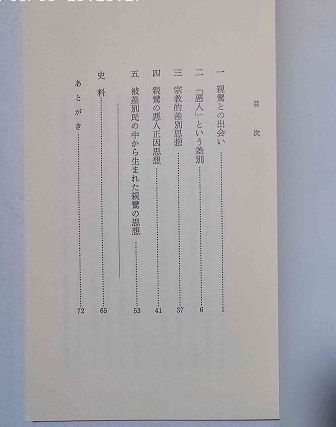 目次
一 親鸞との出会い……1
二 「悪人」という差別……6
三 宗教的差別思想……37
四 親鸞の悪人正因思想……41
五 被差別民の中から生まれた親鸞の思想……53
史料……65
あとがき……72